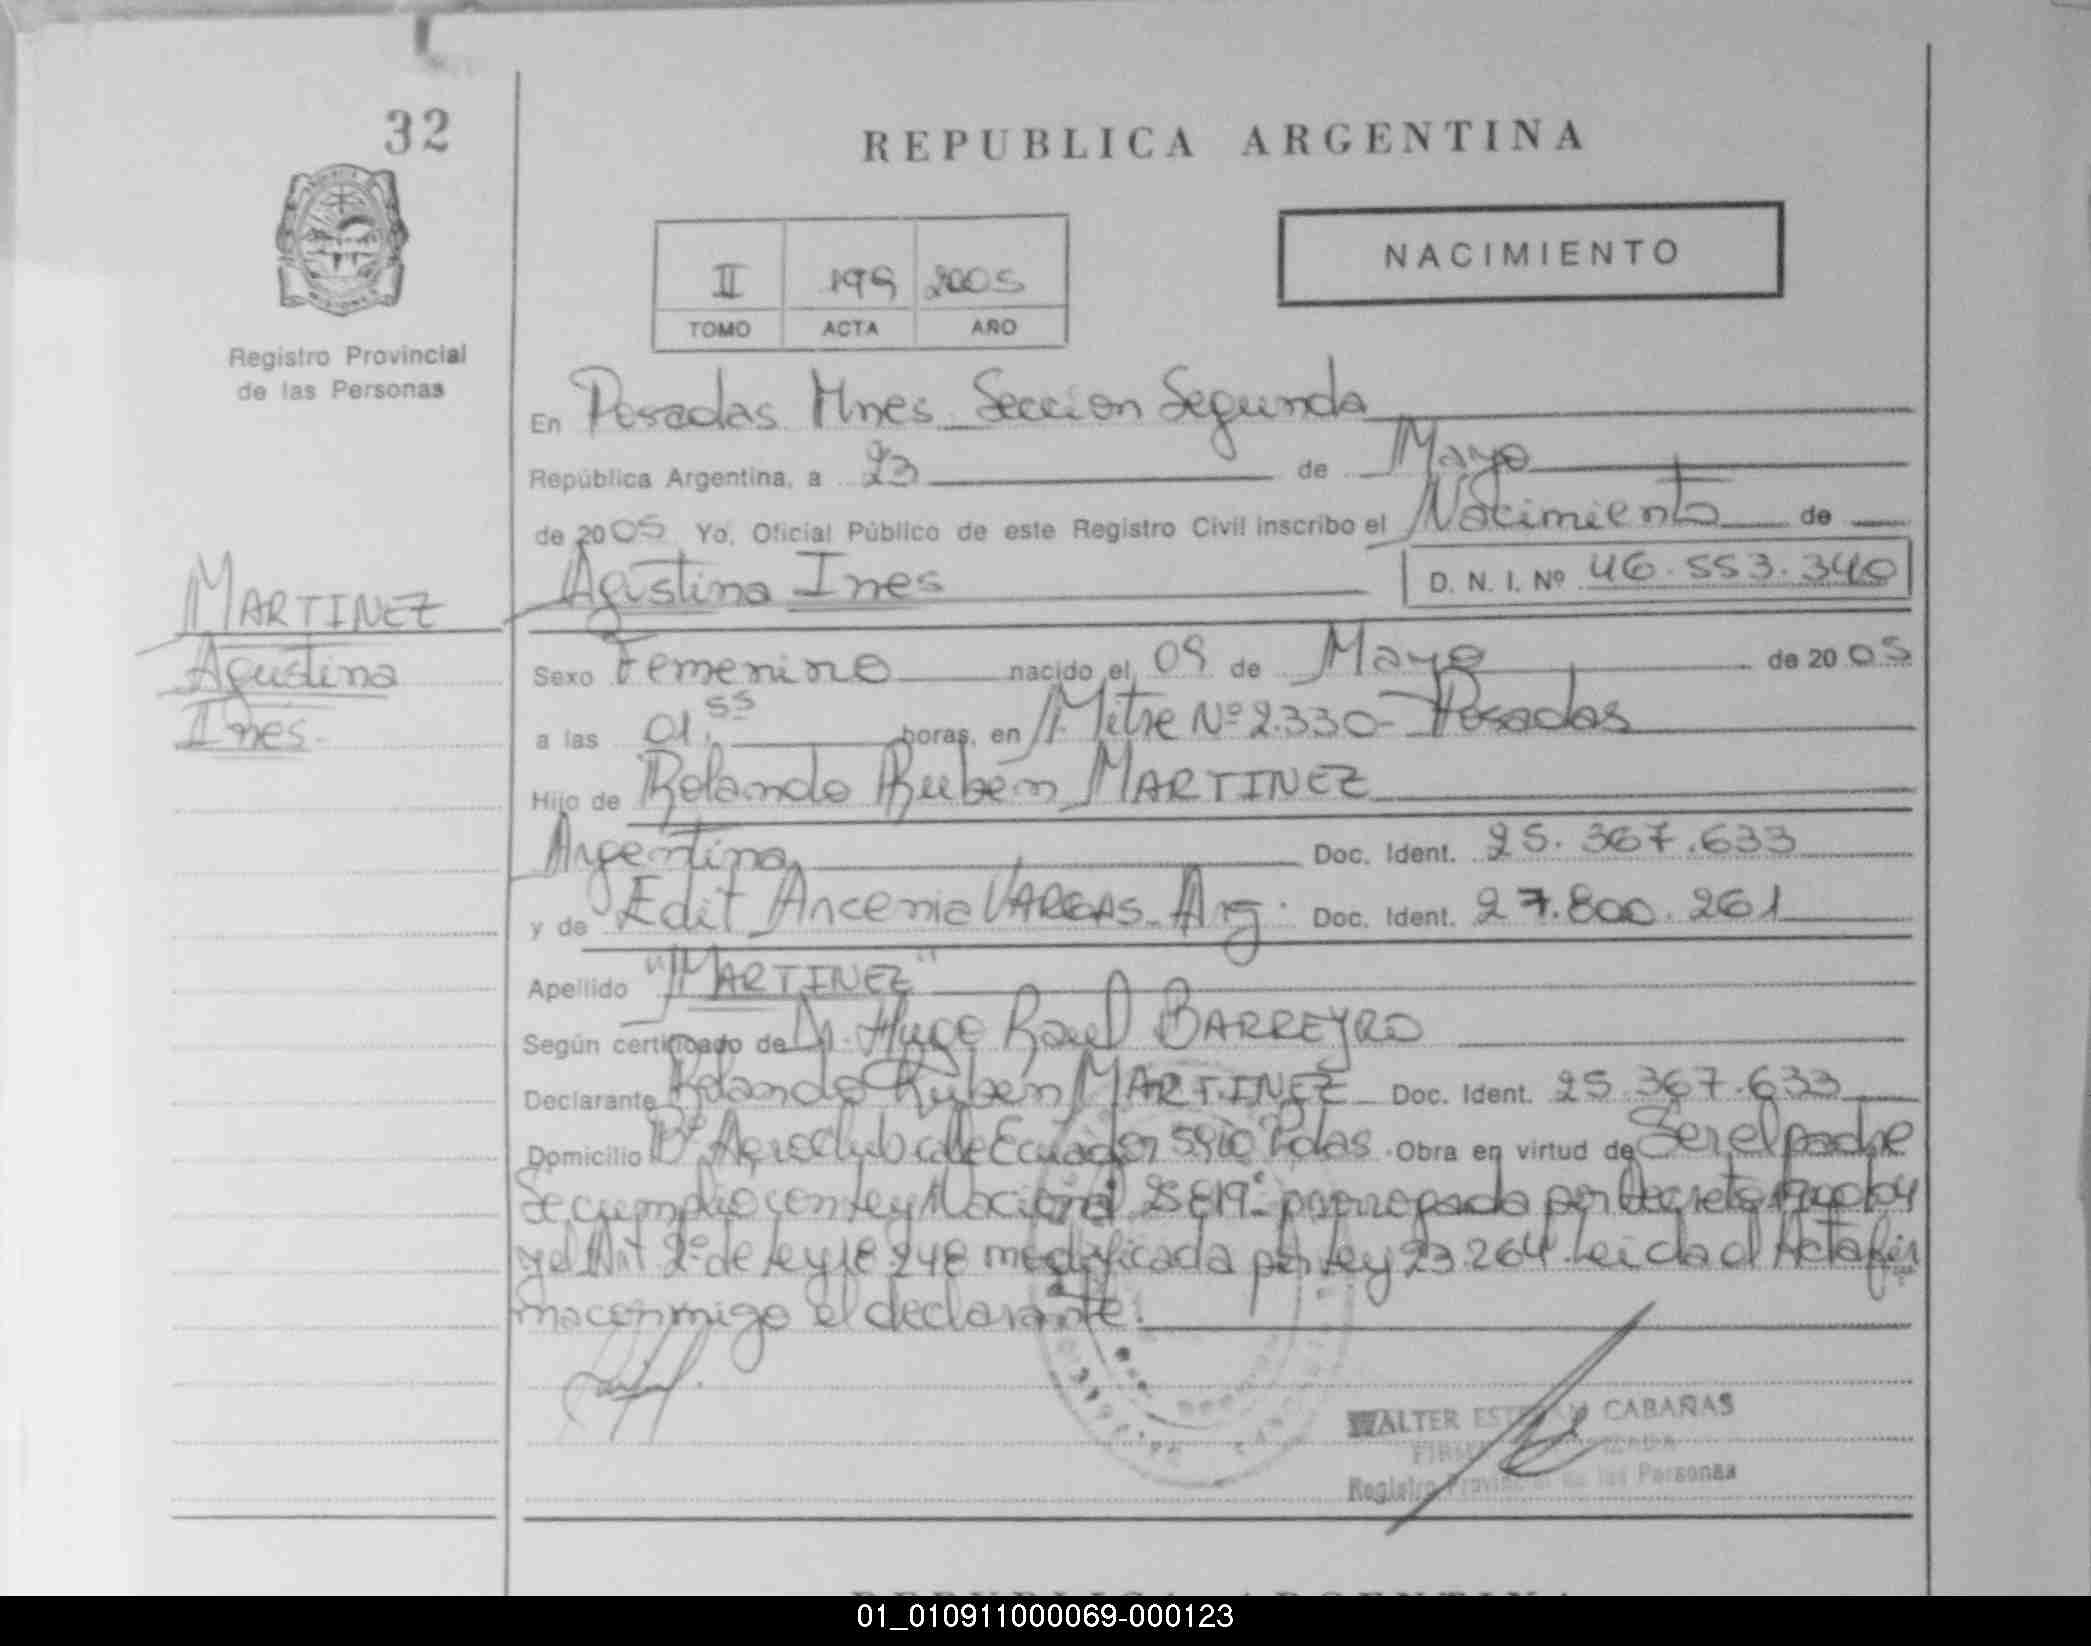 32
REPUBLICA ARGENTINA
NACIMIENTO
II 199 2005
TOMO ACTA AÑO
Registro Provincial
de las Personas
En Posadas Mnes Seccion Segunda
República Argentina, a 23 de Mayo
de 2005 Yo, Oficial Público de este Registro Civil inscribo el Nacimiento de
Agustina Ines D. N. I. Nº 46.553.340
MARTINEZ
Agustina
Ines.
Sexo Femenino nacido el 09 de Mayo de 2005
a las 01.55 horas, en Mitre Nº 2.330- Posadas
Hijo de Rolando Rubén MARTINEZ
Argentina Doc. Ident. 25.367.633
y de Edit Ancenia VARGAS. Arg. Doc. Ident. 27.800.261
Apellido "MARTINEZ"
Según certificado de Dr. Hugo Raul BARREYRO
Declarante Rolando Ruben MARTINEZ Doc. Ident. 25.367.633
Domicilio Bº Aeroclub calle Ecuador Pdas. Obra en virtud de Ser el padre
Se cumplio con Ley Nacional 25819- prorrogada por Decreto
y el Art 2º de Ley 18.248 modificada por Ley 23.264. Leida el Acta fir
ma conmigo el declarante.
WALTER CABAÑAS
Registro Provincial de las Personas
01_010911000069-000123